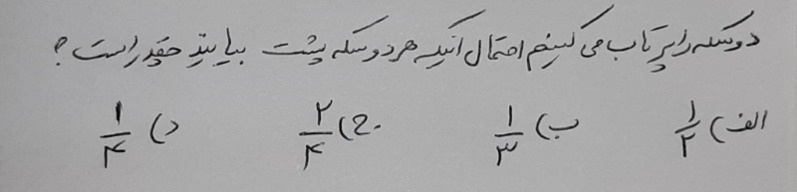 دو سکه را پرتاب می کنیم احتمال آنکه هر دو سکه پشت بیایند چقدر است ؟
الف) ۱/۲ ب) ۱/۳ ج) ۲/۴ د) ۱/۴